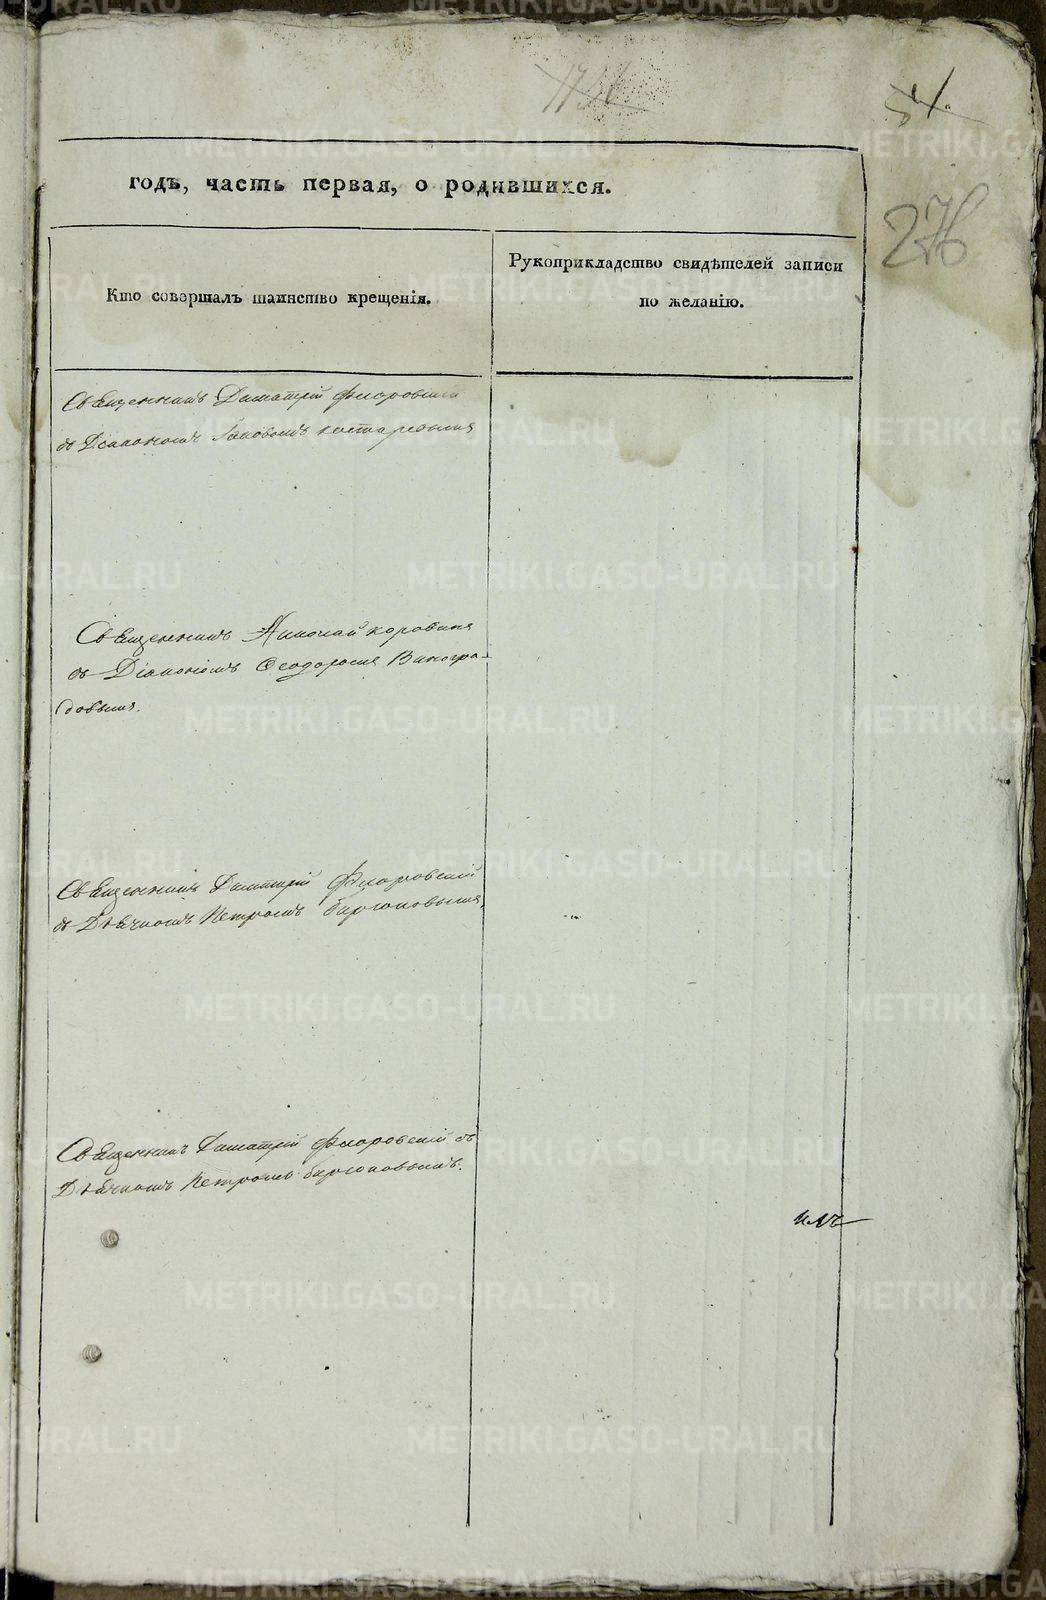 54.
276
годъ, часть первая, о родившихся.
Кто совершалъ таинство крещенія.
Рукоприкладство свидѣтелей записи
по желанію.
Священникъ Димитрій Флоровскій
съ Діакономъ Іаковомъ Костаревымъ
Священникъ Николай Коровинъ
съ Діакономъ Ѳеодоромъ Виногра-
довымъ.
Священникъ Димитрій Флоровскій
съ Дьячкомъ Петромъ Бирюковымъ,
Священникъ Димитрій Флоровскій съ
Дьячкомъ Петромъ Бирюковымъ.
METRIKI.GASO-URAL.RU